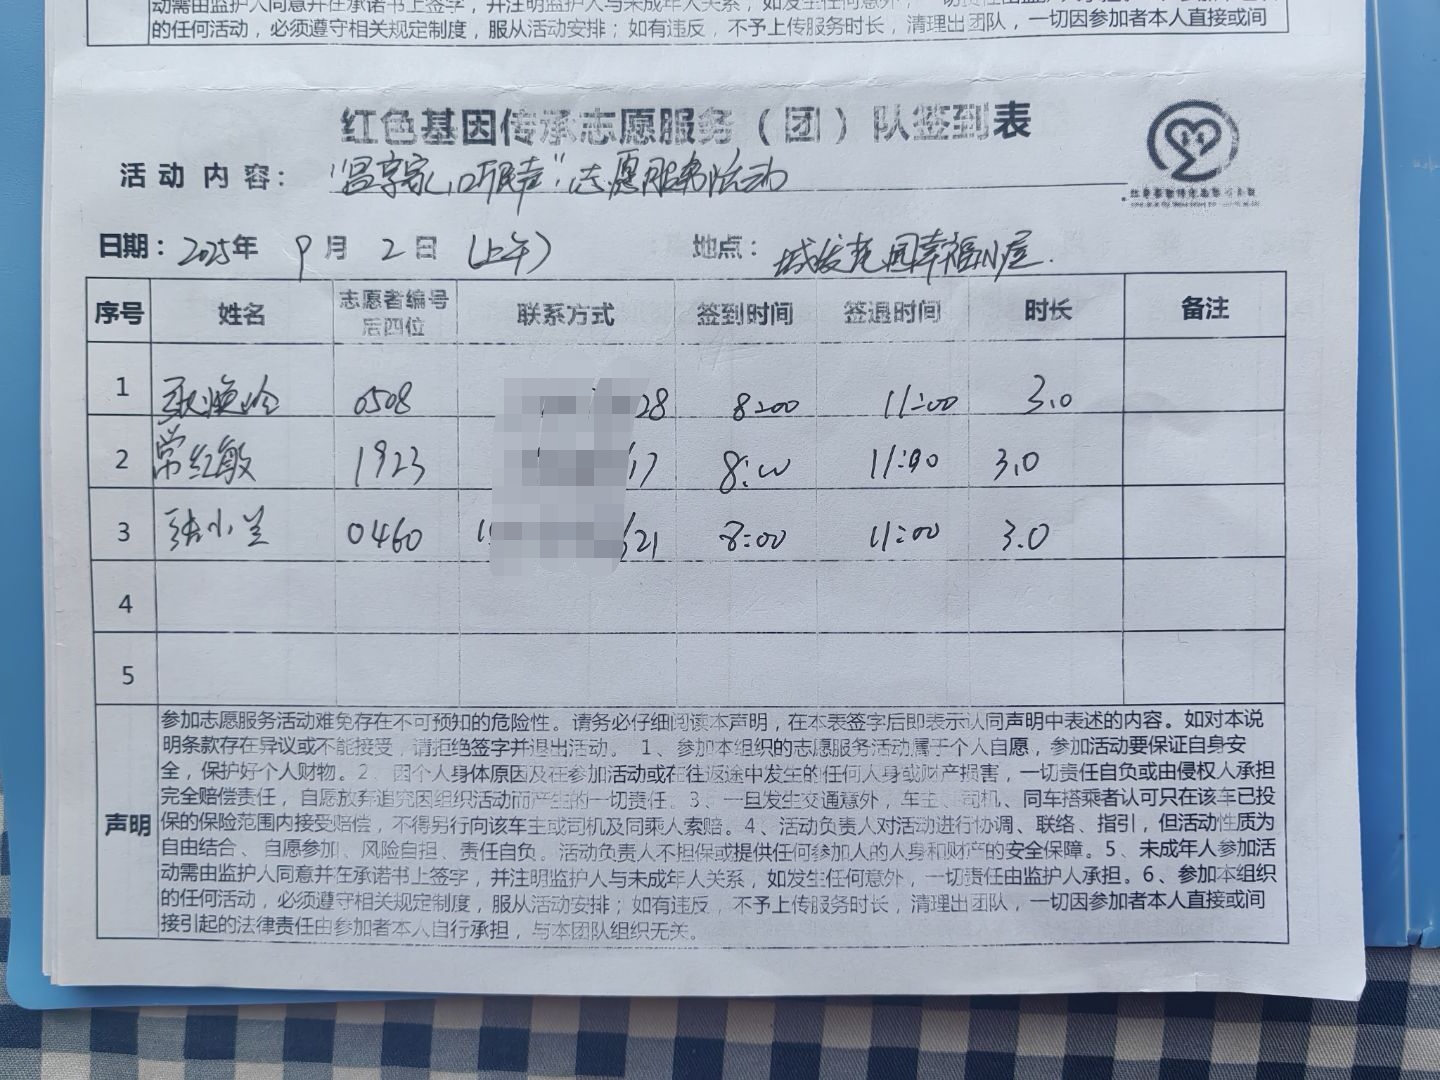 动需由监护人同意并在承诺书上签字，并注明监护人与未成年人关系，如发生任何意外，一切责任由监护人承担。6、参加本组织
的任何活动，必须遵守相关规定制度，服从活动安排；如有违反，不予上传服务时长，清理出团队，一切因参加者本人直接或间
红色基因传承志愿服务（团）队签到表
活动内容： 家，听民声"志愿服务活动
日期：2025年 9月 2日（上午） 地点：城发花园幸福小屋.
序号 姓名 志愿者编号后四位 联系方式 签到时间 签退时间 时长 备注
1 0508 28 8:00 11:00 3.0
2 常红敏 1923 17 8:00 11:00 3.0
3 张小兰 0460 1 21 8:00 11:00 3.0
4
5
声明
参加志愿服务活动难免存在不可预知的危险性。请务必仔细阅读本声明，在本表签字后即表示认同声明中表述的内容。如对本说
明条款存在异议或不能接受，请拒绝签字并退出活动。 1、参加本组织的志愿服务活动属于个人自愿，参加活动要保证自身安
全，保护好个人财物。2、因个人身体原因及在参加活动或在往返途中发生的任何人身或财产损害，一切责任自负或由侵权人承担
完全赔偿责任，自愿放弃追究因组织活动而产生的一切责任。3、一旦发生交通意外，车主、司机、同车搭乘者认可只在该车已投
保的保险范围内接受赔偿，不得另行向该车主或司机及同乘人索赔。4、活动负责人对活动进行协调、联络、指引，但活动性质为
自由结合、自愿参加、风险自担、责任自负。活动负责人不担保或提供任何参加人的人身和财产的安全保障。5、未成年人参加活
动需由监护人同意并在承诺书上签字，并注明监护人与未成年人关系，如发生任何意外，一切责任由监护人承担。6、参加本组织
的任何活动，必须遵守相关规定制度，服从活动安排；如有违反，不予上传服务时长，清理出团队，一切因参加者本人直接或间
接引起的法律责任由参加者本人自行承担，与本团队组织无关。